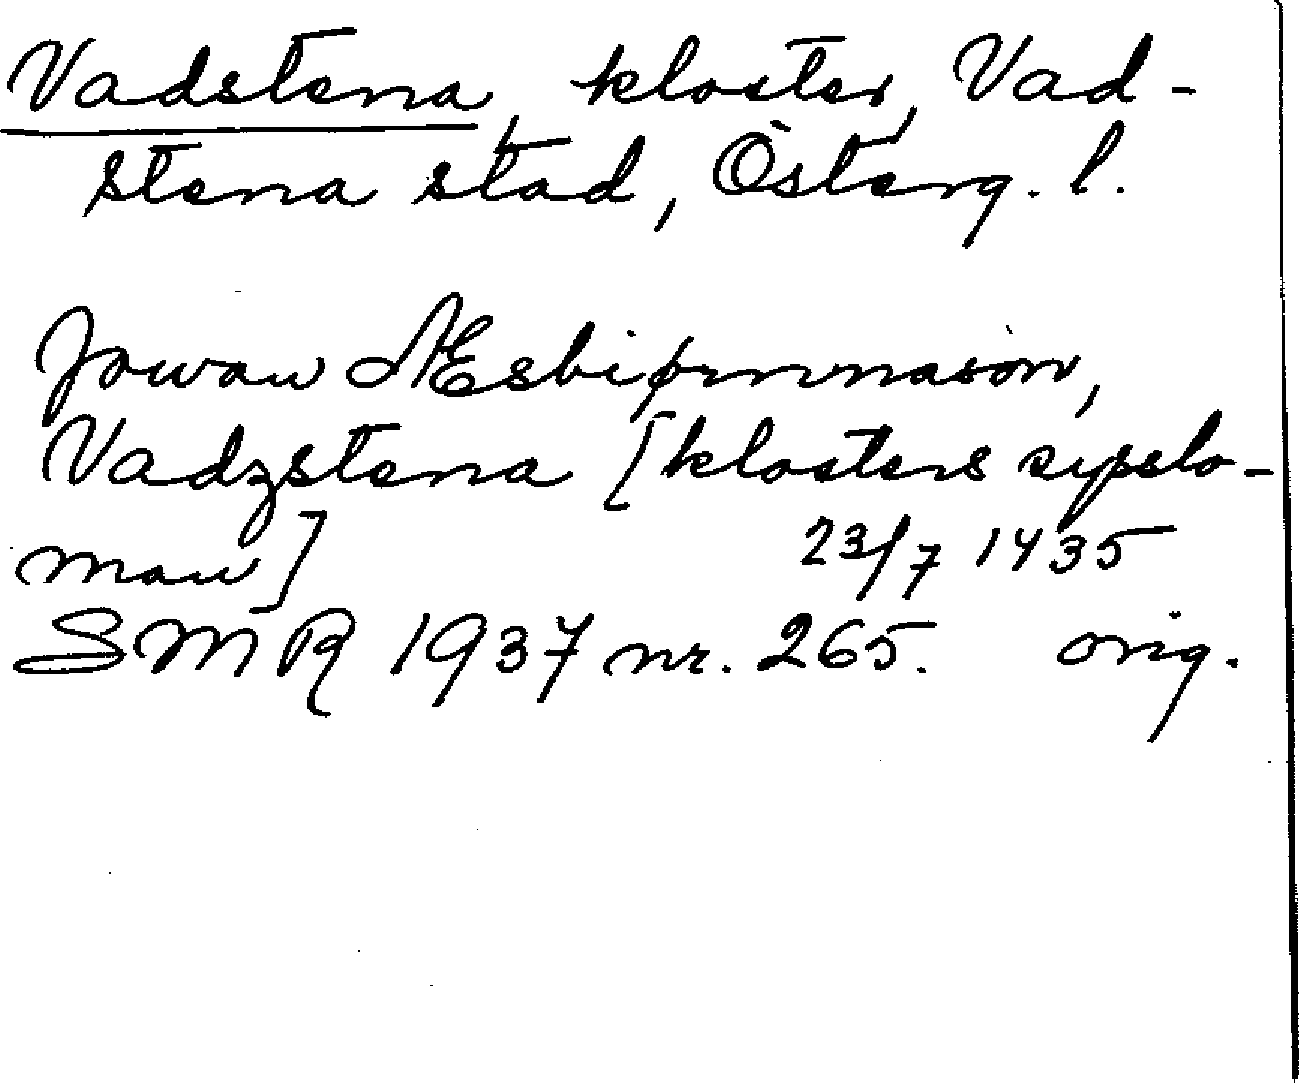 Vadstena, kloster, Vad-
stena stad, Österg. l.
Jowan Æsbiørnnason,
Vadzstena [klosters syslo-
man] 23/7 1435
SMR 1937 nr. 265. orig.